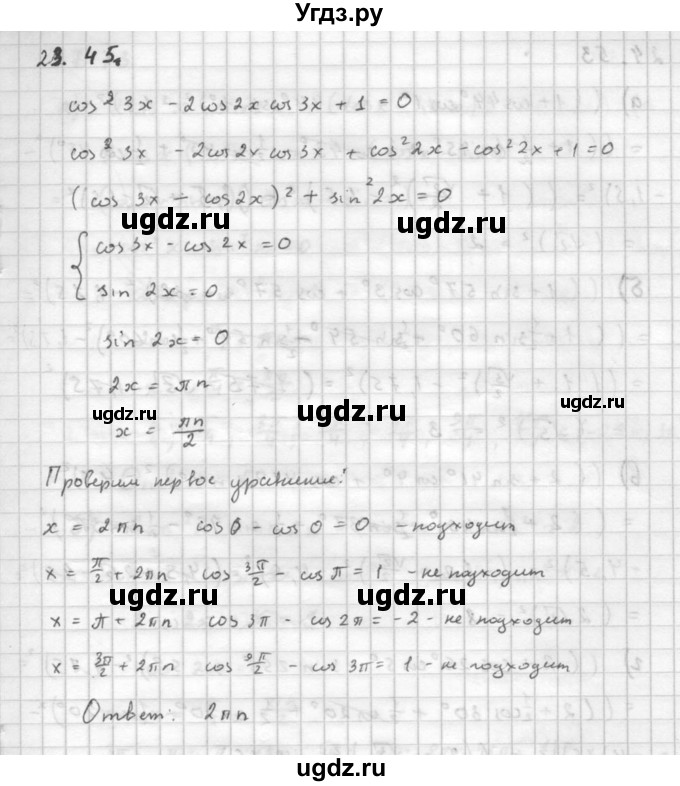 ugdz.ru
23. 45.
cos² 3x - 2cos2x cos3x + 1 = 0
cos² 3x - 2cos2x cos3x + cos² 2x - cos² 2x + 1 = 0
(cos 3x - cos2x)² + sin² 2x = 0
ugdz.ru ugdz.ru
{ cos 3x - cos 2x = 0
sin 2x = 0
sin 2x = 0
2x = πn
ugdz.ru ugdz.ru ugdz.ru
x = πn/2
Проверим первое уравнение:
x = 2πn cos0 - cos 0 = 0 - подходит
x = π/2 + 2πn cos 3π/2 - cos π = 1 - не подходит
ugdz.ru ugdz.ru
x = π + 2πn cos 3π - cos 2π = -2 - не подходит
x = 3π/2 + 2πn cos 9π/2 - cos 3π = 1 - не подходит
Ответ: 2πn
ugdz.ru
ugdz.ru